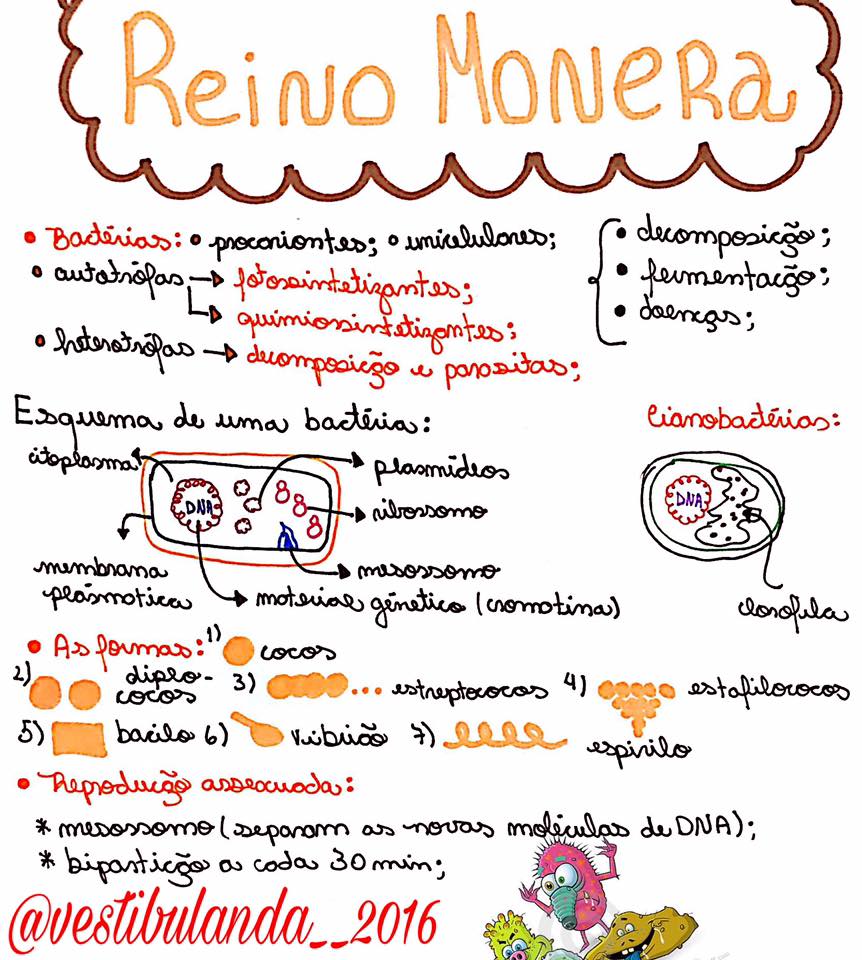 Reino Monera
• Bactérias: • procariontes; • unicelulares;
• autotrófas → fotossintetizantes;
quimiossintetizantes;
• heterotrófas → decomposição e parasitas;
• decomposição;
• fermentação;
• doenças;
Esquema de uma bactéria:
citoplasma
DNA
plasmídeos
ribossomo
mesossomo
membrana
plásmatica
material génetico (cromatina)
Cianobactérias:
DNA
clorofila
• As formas: 1) cocos
2) diplo-
cocos
3) ... estreptococos 4) estafilococos
5) bacilo 6) vibrião 7) espirilo
• Reprodução assexuada:
* mesossomo (separam as novas moléculas de DNA);
* bipartição a cada 30 min;
@vestibulanda__2016